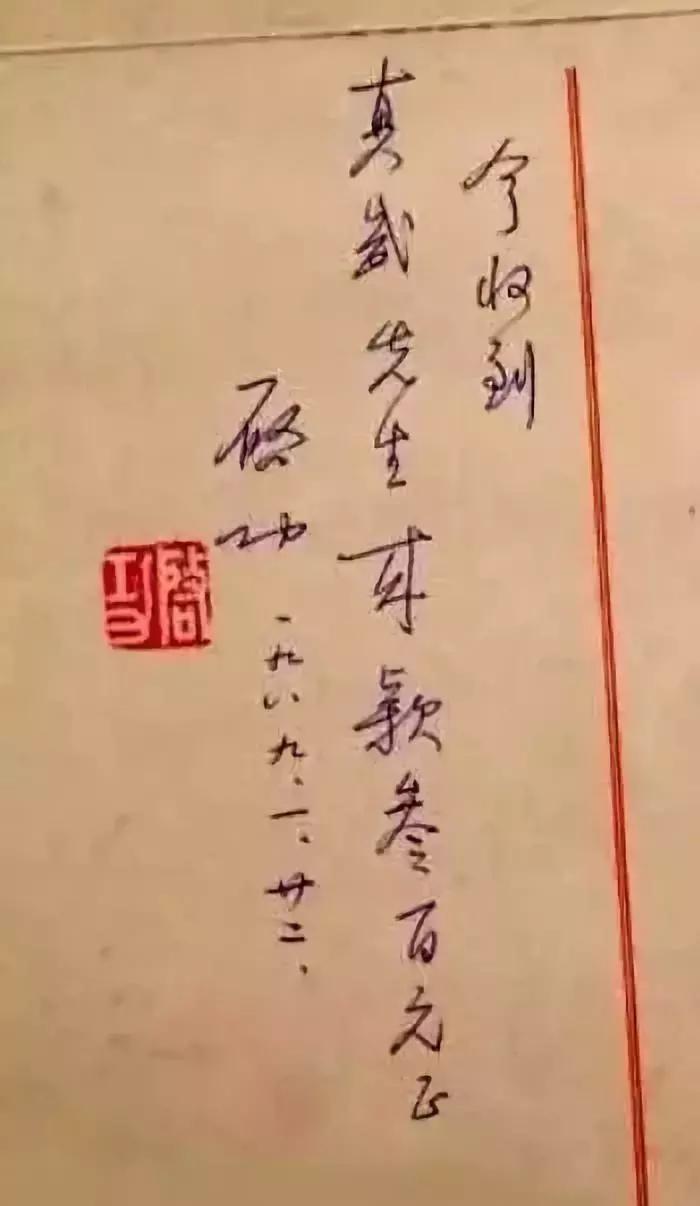 今收到
真先生来款叁百元正
啟功
一九八九、一、廿二、
啟功